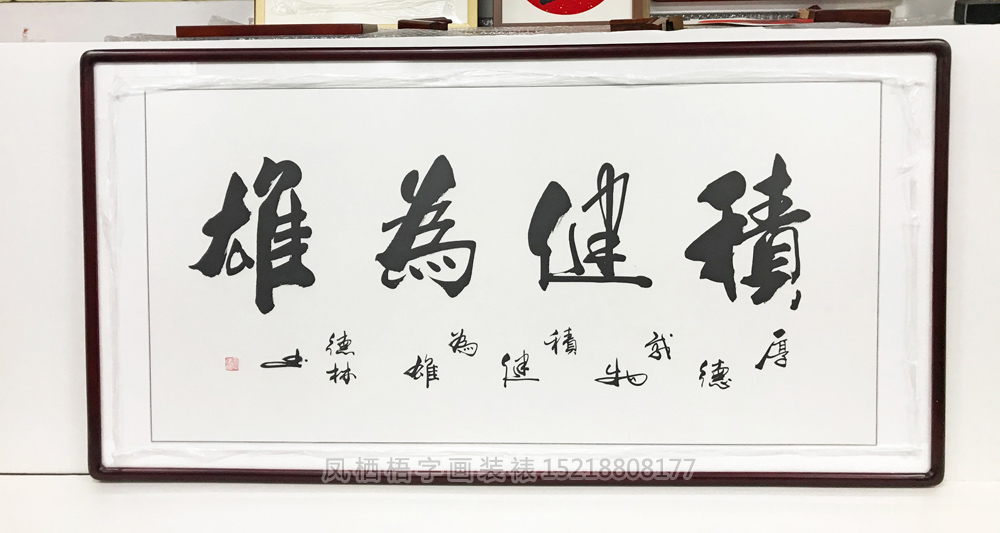 積健為雄
厚德載物積健為雄
德林書
凤栖梧字画装裱15218808177